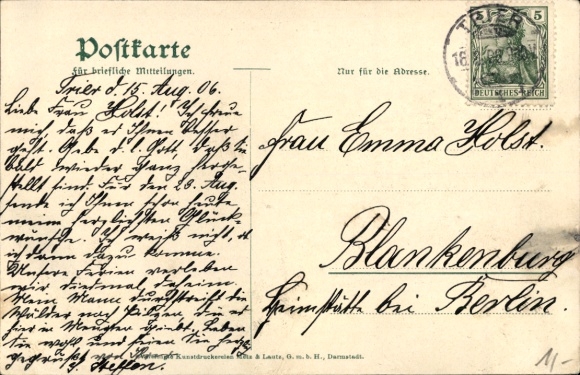 Postkarte
Für briefliche Mitteilungen.
Nur für die Adresse.
TRIER
5
DEUTSCHES REICH
Trier d. 15. Aug. 06.
Liebe Frau Holst! Ich freue
mich, daß es Ihnen besser
geht. Gebe d. l. Gott, daß Sie
bald wieder ganz herge-
stellt sind. Für den 28. Aug.
sende ich Ihnen schon heute
meine herzlichsten Glück
wünsche. Ich weiß nicht, ob
ich dann dazu komme.
Unsere Ferien verleben
wir diesmal daheim.
Mein Mann durchstreift die
Wälder nach Pilzen, die es
hier in Mengen giebt. Leben
Sie wohl und seien Sie herzl.
gegrüßt von Ihrer
Steffen.
Frau Emma Holst.
Blankenburg
Heimstätte bei Berlin.
Vereinigte Kunstdruckereien Metz & Lautz, G. m. b. H., Darmstadt.
1/-